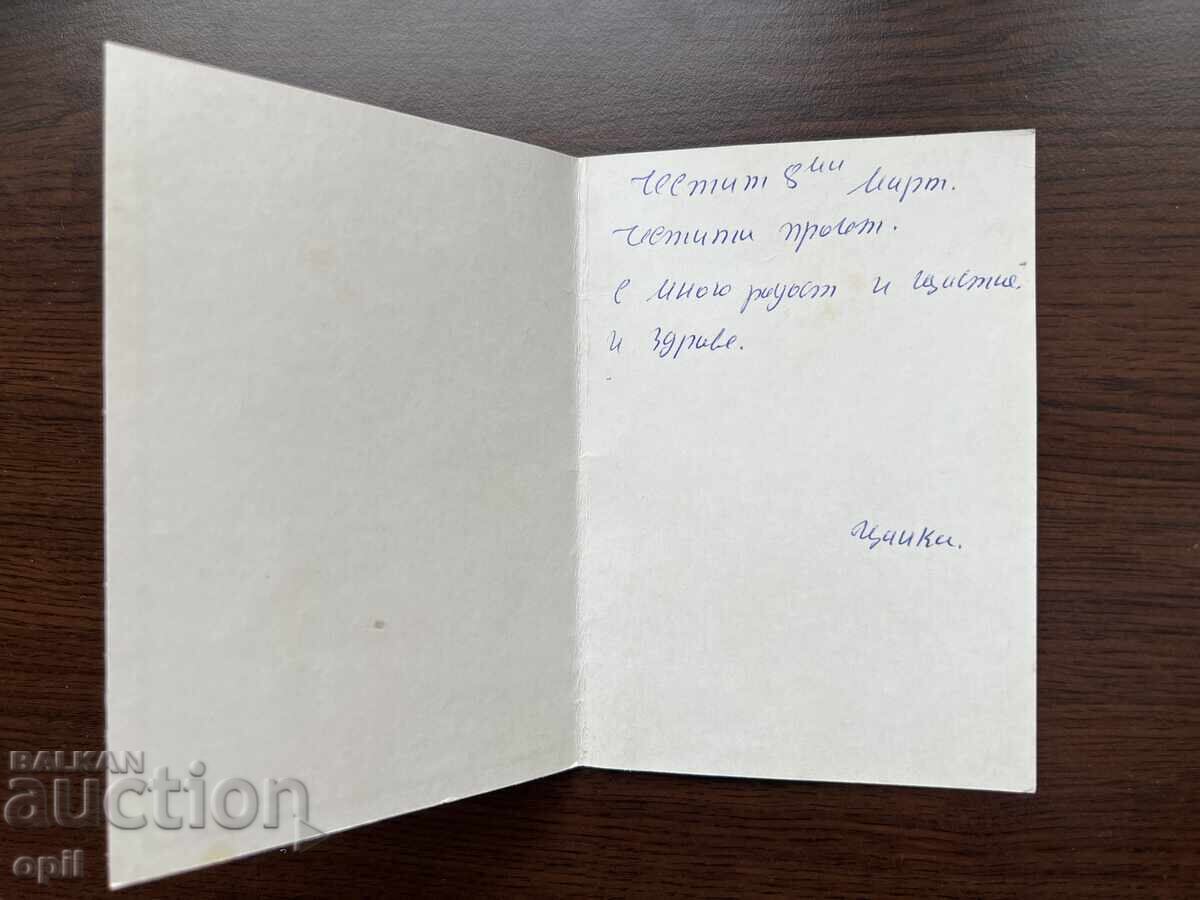 Честит 8ми Март.
Честита пролет.
с много радост и щастие
и здраве.
Цанка.
BALKAN
auction
opil